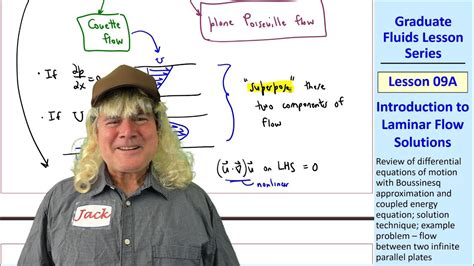 Couette
flow
plane Poiseuille flow
• If dp/dx = 0
U
"superpose" these
two components of
flow
• If U
(u⃗·∇⃗)u⃗ on LHS = 0
nonlinear
Jack
Graduate
Fluids Lesson
Series
Lesson 09A
Introduction to
Laminar Flow
Solutions
Review of differential
equations of motion
with Boussinesq
approximation and
coupled energy
equation; solution
technique; example
problem – flow
between two infinite
parallel plates